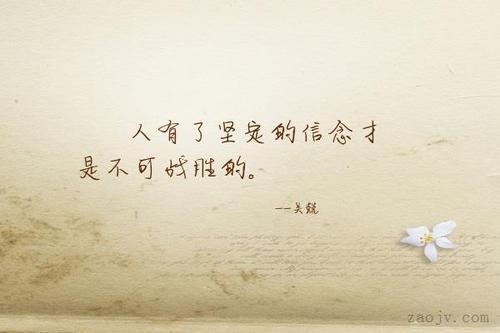 人有了坚定的信念才
是不可战胜的。
--吴锐
zaojv.com